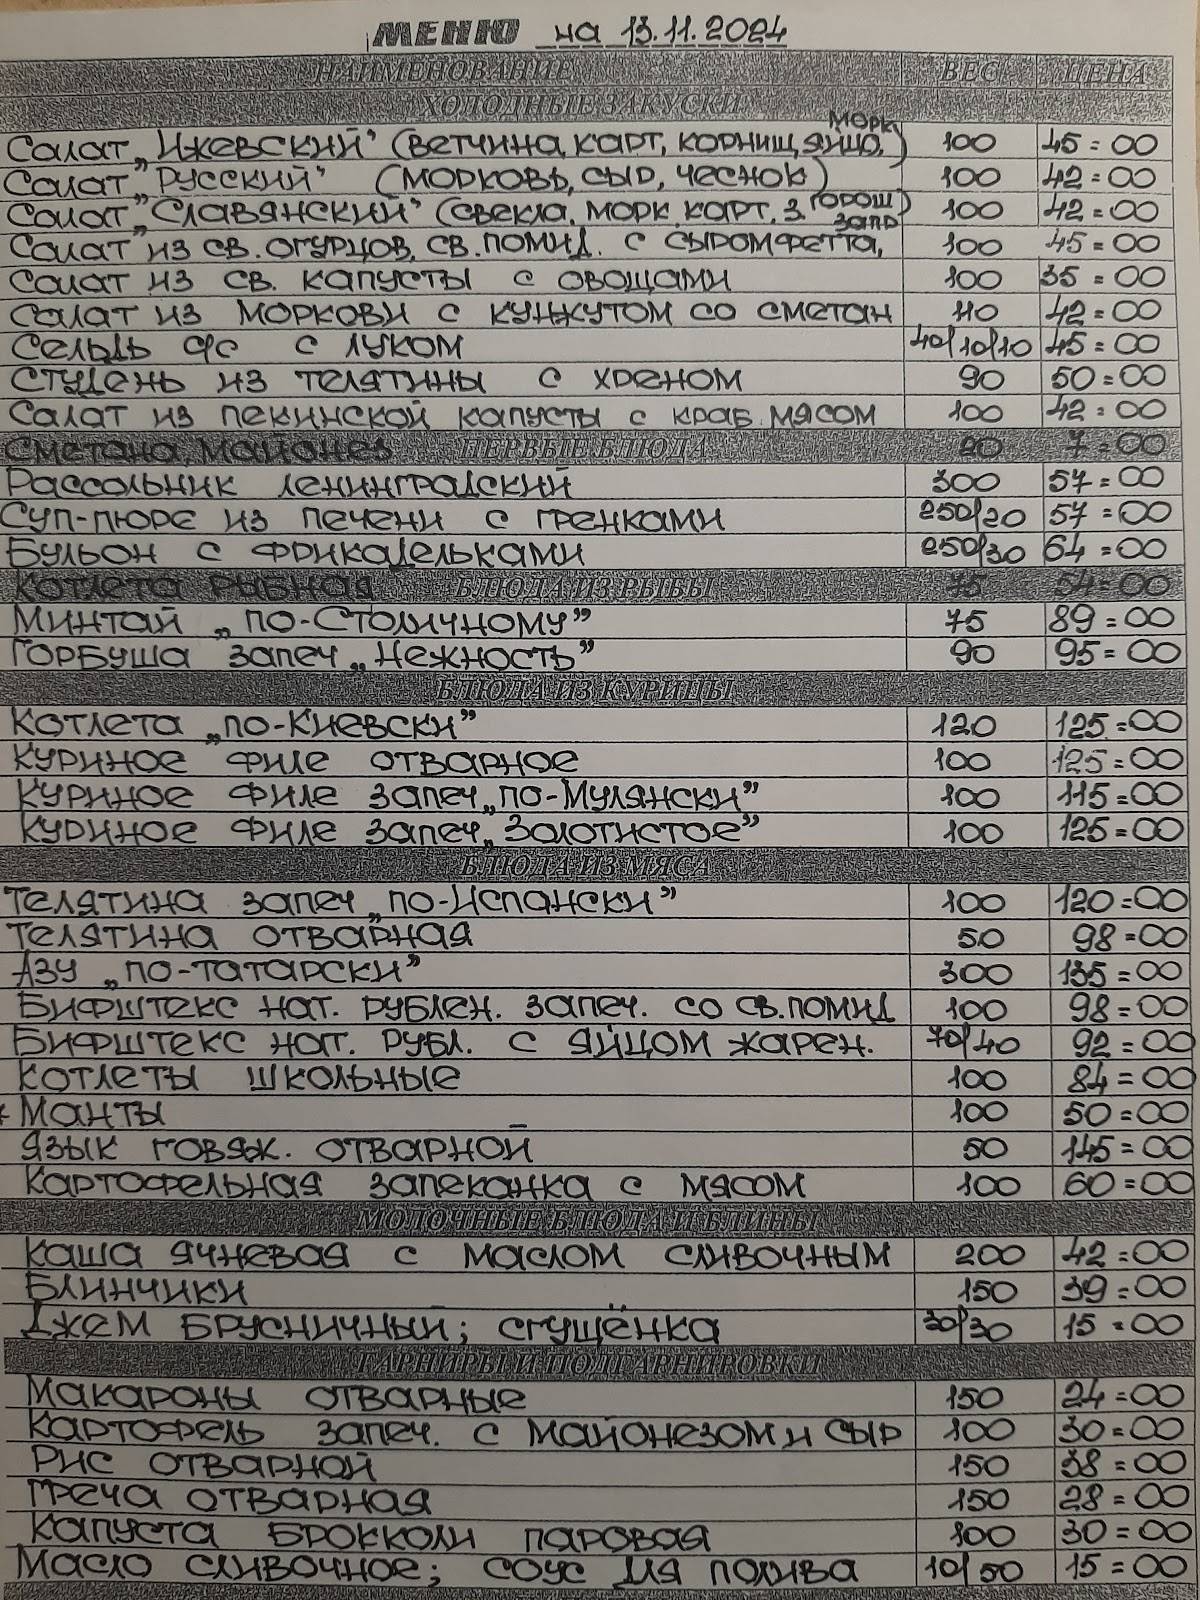 МЕНЮ на 13.11.2024
НАИМЕНОВАНИЕ ВЕС ЦЕНА
ХОЛОДНЫЕ ЗАКУСКИ
Салат „Ижевский” (ветчина, карт, корниш, яйцо, морк) 100 45=00
Салат „Русский” (морковь, сыр, чеснок) 100 42=00
Салат „Славянский” (свекла, морк, карт, з. горош) 100 42=00
Салат из св. огурцов, св. помид. с сыром фетта, запр 100 45=00
Салат из св. капусты с овощами 100 35=00
Салат из моркови с кунжутом со сметан 110 42=00
Сельдь с/с с луком 40/10/10 45=00
Студень из телятины с хреном 90 50=00
Салат из пекинской капусты с краб. мясом 100 42=00
Сметана, майонез ПЕРВЫЕ БЛЮДА 20 7=00
Рассольник ленинградский 300 57=00
Суп-пюре из печени с гренками 250/20 57=00
Бульон с фрикадельками 250/30 64=00
Котлета рыбная БЛЮДА ИЗ РЫБЫ 75 54=00
Минтай „по-Столичному” 75 89=00
Горбуша запеч „Нежность” 90 95=00
БЛЮДА ИЗ КУРИЦЫ
Котлета „по-Киевски” 120 125=00
Куриное филе отварное 100 125=00
Куриное филе запеч „по-Мулянски” 100 115=00
Куриное филе запеч „Золотистое” 100 125=00
БЛЮДА ИЗ МЯСА
Телятина запеч „по-Испански” 100 120=00
Телятина отварная 50 98=00
Азу „по-татарски” 300 135=00
Бифштекс нат. рублен. запеч. со св. помид 100 98=00
Бифштекс нат. рубл. с яйцом жарен. 70/40 92=00
Котлеты школьные 100 84=00
* Манты 100 50=00
Язык говяж. отварной 50 145=00
Картофельная запеканка с мясом 100 60=00
МОЛОЧНЫЕ БЛЮДА И БЛИНЫ
Каша ячневая с маслом сливочным 200 42=00
Блинчики 150 39=00
Джем брусничный; сгущёнка 30/30 15=00
ГАРНИРЫ И ПОДГАРНИРОВКИ
Макароны отварные 150 24=00
Картофель запеч. с майонезом и сыр 100 30=00
Рис отварной 150 38=00
Греча отварная 150 28=00
Капуста брокколи паровая 100 30=00
Масло сливочное; соус для полива 10/50 15=00